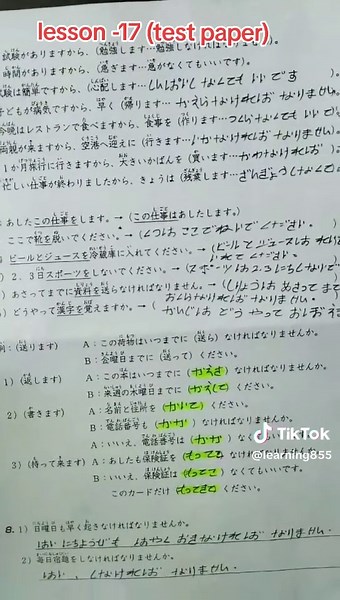 lesson -17 (test paper)
試験がありますから、(勉強します…勉強しなければなりません)。
時間がありますから、(急ぎます…急がなくてもいいです)。
試験は簡単ですから、(心配します…しんぱいしなくてもいいです)。
子どもが病気ですから、早く(帰ります…かえらなければなりません)。
今晩はレストランで食べますから、食事を(作ります…つくらなくてもいいです
両親が来ますから、空港へ迎えに(行きます…いかなければなりません)。
1か月旅行に行きますから、大きいかばんを(買います…かわなければ
忙しい仕事が終わりましたから、きょうは(残業します…ざんぎょうしなくても
あしたこの仕事をします。→(この仕事はあしたします。)
ここで靴を脱いでください。→(くつは ここで ぬいで ください。
ビールとジュースを冷蔵庫に入れてください。→(ビールとジュースは れいぞ
いれて ください。
2、3日スポーツをしないでください。→(スポーツは2、3にちしないで
あさってまでに資料を送らなければなりません。→(しりょうは あさって まで
おくらなければ なりません。
どうやって漢字を覚えますか。→(かんじは どう やって おぼえ
例:(送ります) A:この荷物はいつまでに(送ら)なければなりませんか。
B:金曜日までに(送って)ください。
1)(返します) A:この本はいつまでに(かえさ)なければなりませんか。
B:来週の水曜日までに(かえして)ください。
2)(書きます) A:名前と住所を(かいて)ください。
B:電話番号も(かか)なければなりませんか。
A:いいえ、電話番号は(かか)なくても
3)(持って来ます) A:あしたも保険証を(もってこ)なければなりませんか。
B:いいえ、保険証は(もってこ)なくてもいいです。
このカードだけ(もってきて)ください。
TikTok
@learning855
8. 1)日曜日も早く起きなければなりませんか。
はい にちようびも はやく おきなければ なりません。
2)毎日宿題をしなければなりませんか。
はい、しなければ なりません。